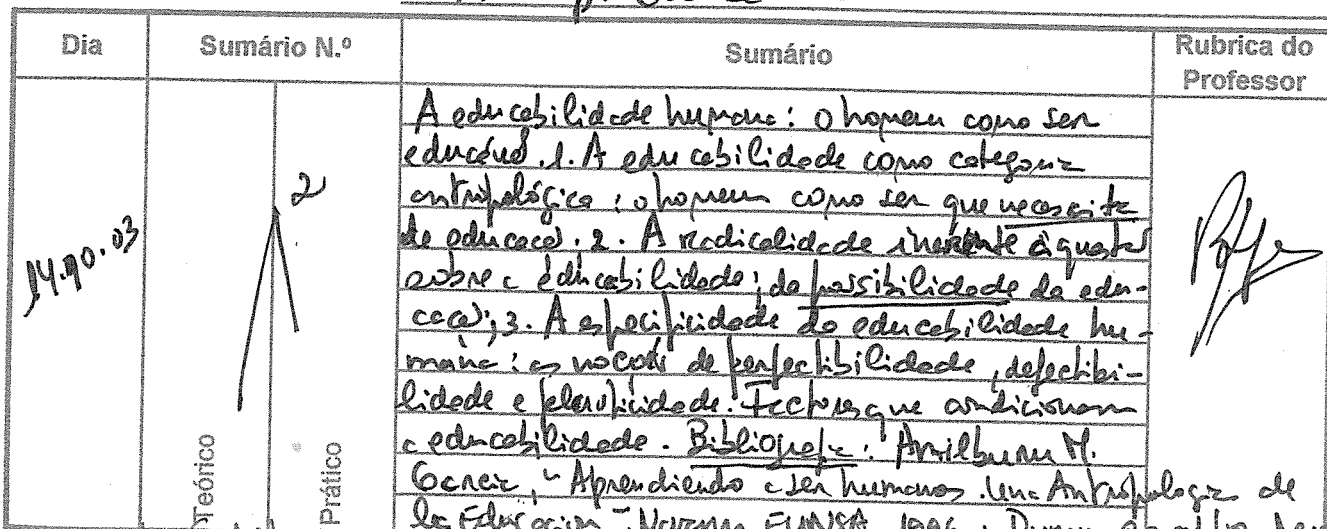 Dia Sumário N.º Sumário Rubrica do Professor
14.10.03
2
Teórico
Prático
A educabilidade humana: o homem como ser
educável. 1. A educabilidade como categoria
antropológica: o homem como ser que necessita
de educação. 2. A radicalidade inerente à questão
sobre a educabilidade: da possibilidade da edu-
cação; 3. A especificidade da educabilidade hu-
mana: as noções de perfectibilidade, defectibi-
lidade e plasticidade. Factores que condicionam
a educabilidade. Bibliografia: M.
García, "Aprendiendo a ser humanos. Una Antropología de
la Educación", Navarra, EUNSA,